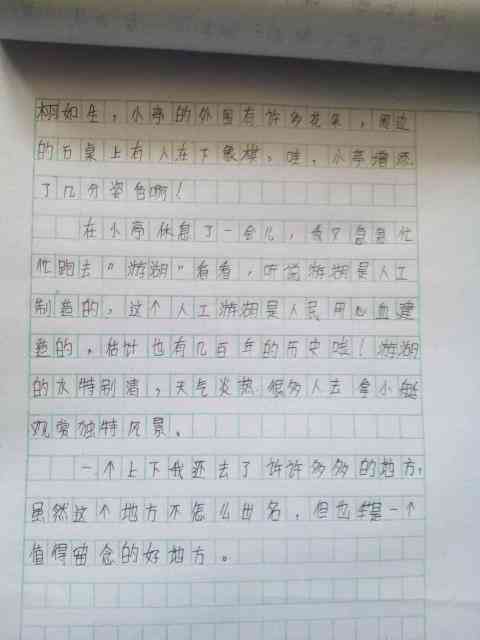 栩如生，小亭的外围有许多花朵，周边
的石桌上有人在下象棋，哇，小亭增添
了几分姿色啊！
在小亭休息了一会儿，我又急急忙
忙跑去“游湖”看看，听说游湖是人工
制造的，这个人工游湖是人民用心血建
造的，估计也有几百年的历史哦！游湖
的水特别清，天气炎热很多人去拿小艇
观赏独特风景。
一个上下我还去了许许多多的地方，
虽然这个地方不怎么出名，但也是一个
值得留念的好地方。